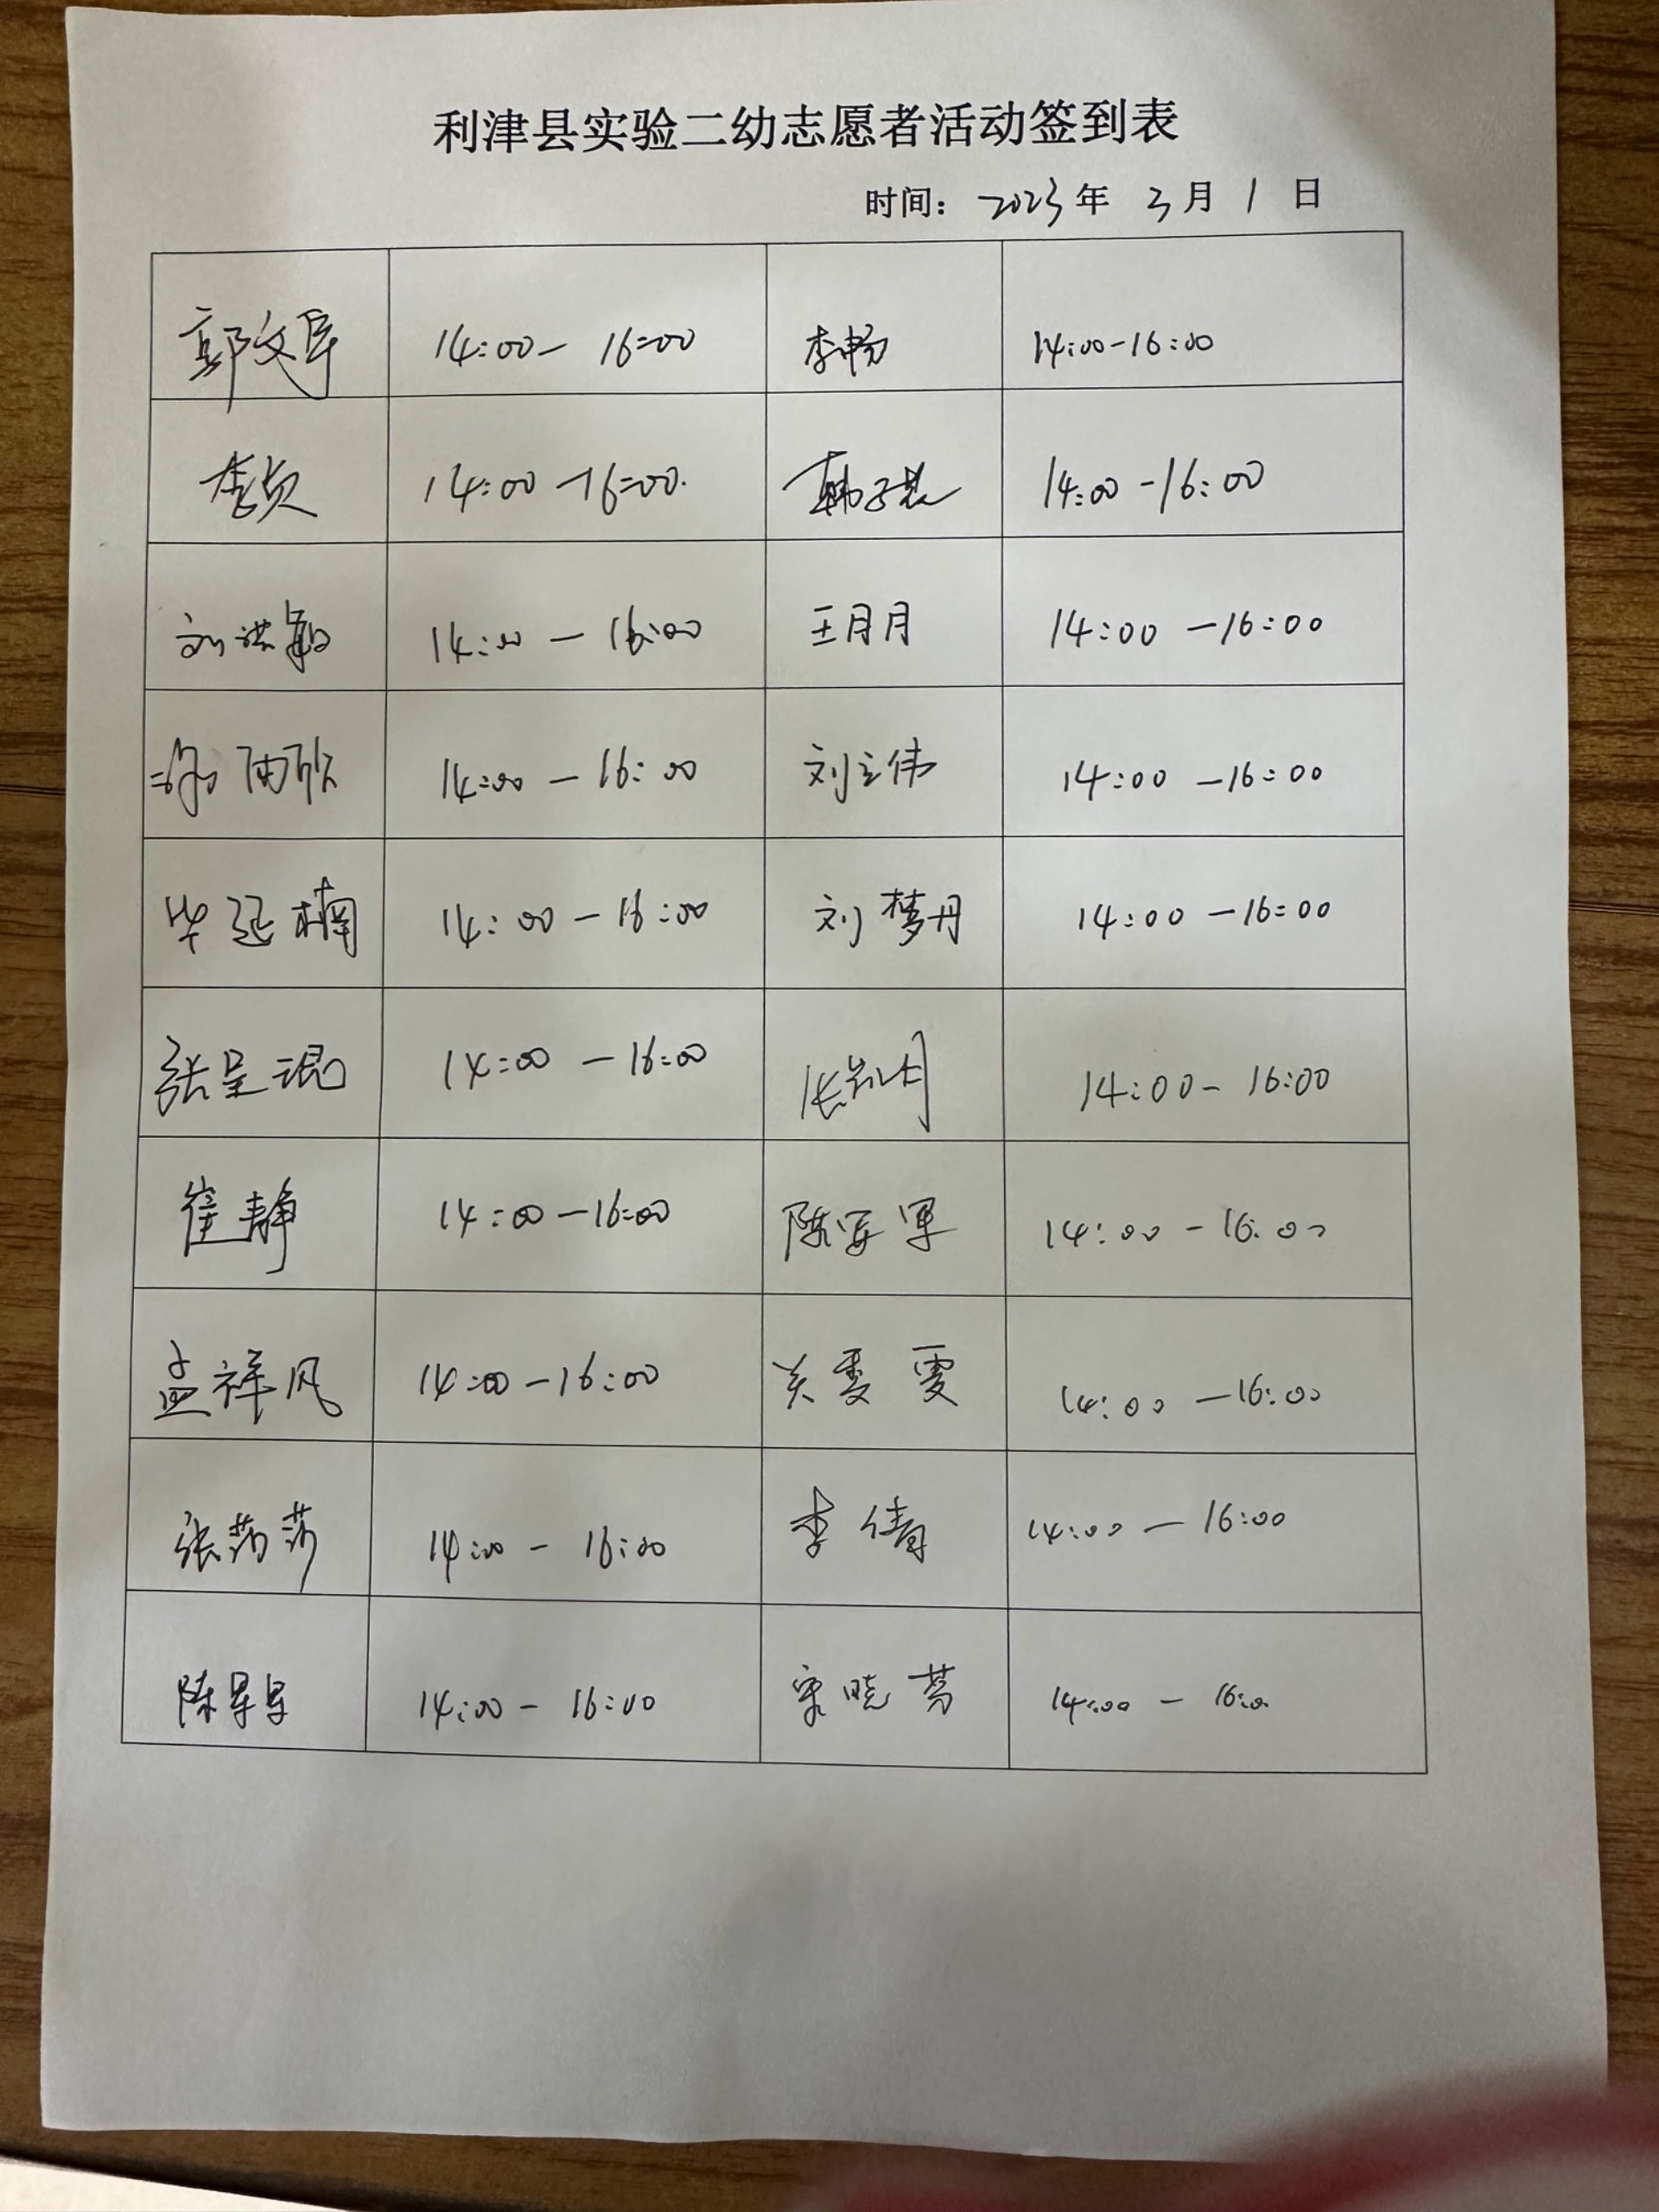 利津县实验二幼志愿者活动签到表
时间：2023年 3月 1日
14:00- 16:00 李畅 14:00-16:00
李贞 14:00-16:00. 14:00-16:00
刘洪敏 14:00 - 16:00 王月月 14:00 -16:00
14:00 - 16:00 刘立伟 14:00 -16:00
毕延楠 14:00 - 16:00 刘梦丹 14:00 -16:00
张呈混 14:00 - 16:00 14:00- 16:00
崔静 14:00-16:00 陈军 14:00 - 16:00
孟祥风 14:00-16:00 关雯雯 14:00 -16:00
张莎莎 14:00 - 16:00 李倩 14:00 - 16:00
陈星星 14:00 - 16:00 宋晓芳 14:00 - 16:0